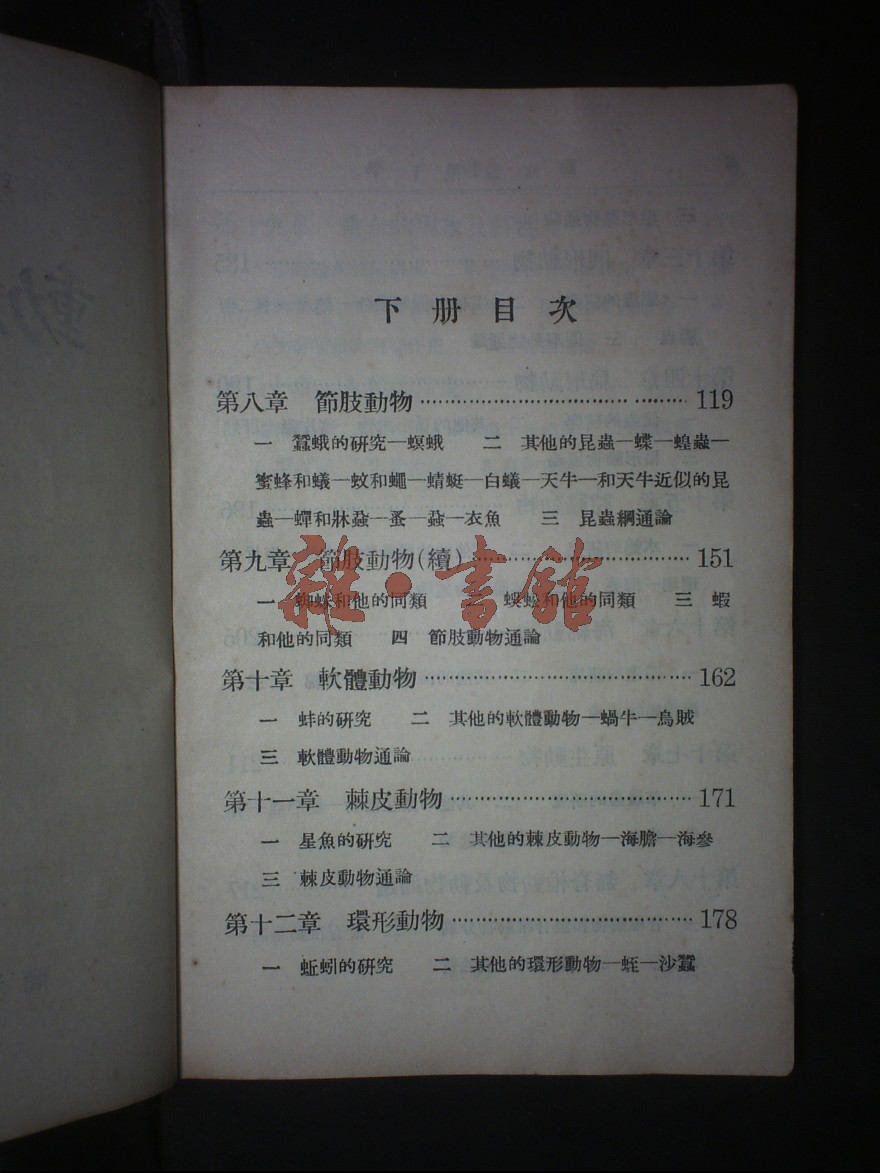 下册目次
第八章 節肢動物 119
一 蠶蛾的研究—螟蛾 二 其他的昆蟲—蝶—蝗蟲—
蜜蜂和蟻—蚊和蠅—蜻蜓—白蟻—天牛—和天牛近似的昆
蟲—蟬和牀蝨—蚤—蝨—衣魚 三 昆蟲綱通論
第九章 節肢動物(續) 151
一 蜘蛛和他的同類 二 蜈蚣和他的同類 三 蝦
和他的同類 四 節肢動物通論
第十章 軟體動物 162
一 蚌的研究 二 其他的軟體動物—蝸牛—烏賊
三 軟體動物通論
第十一章 棘皮動物 171
一 星魚的研究 二 其他的棘皮動物—海膽—海參
三 棘皮動物通論
第十二章 環形動物 178
一 蚯蚓的研究 二 其他的環形動物—蛭—沙蠶
雜·書館
動